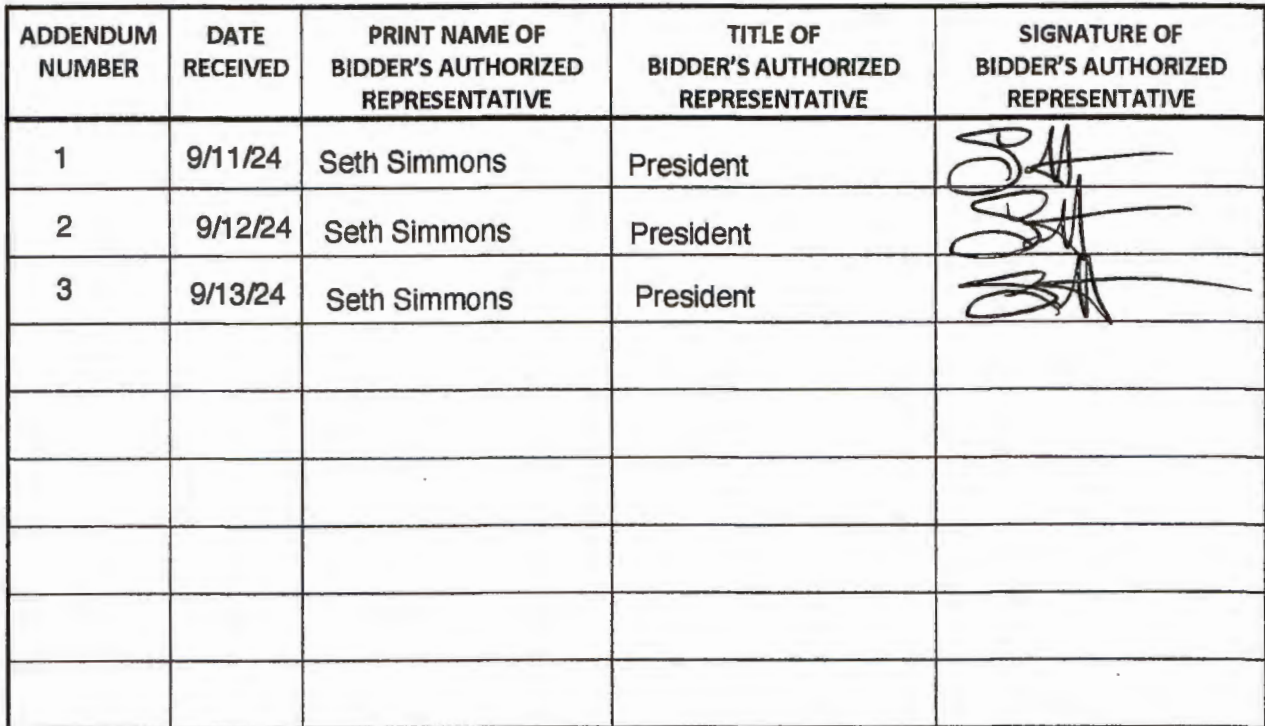 ADDENDUM NUMBER
DATE RECEIVED
PRINT NAME OF BIDDER'S AUTHORIZED REPRESENTATIVE
TITLE OF BIDDER'S AUTHORIZED REPRESENTATIVE
SIGNATURE OF BIDDER'S AUTHORIZED REPRESENTATIVE
1 9/11/24 Seth Simmons President
2 9/12/24 Seth Simmons President
3 9/13/24 Seth Simmons President